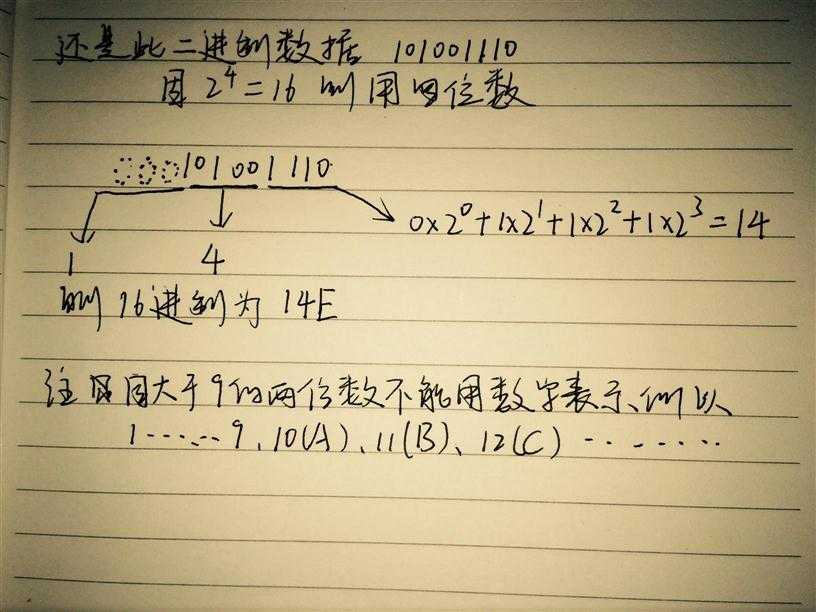 还是此二进制数据 101001110
因 2⁴=16 则用四位数
000101001110
0×2⁰+1×2¹+1×2²+1×2³=14
1 4
则 16进制为 14E
注 因大于9的两位数不能用数字表示、则以
1……9、10(A)、11(B)、12(C)………